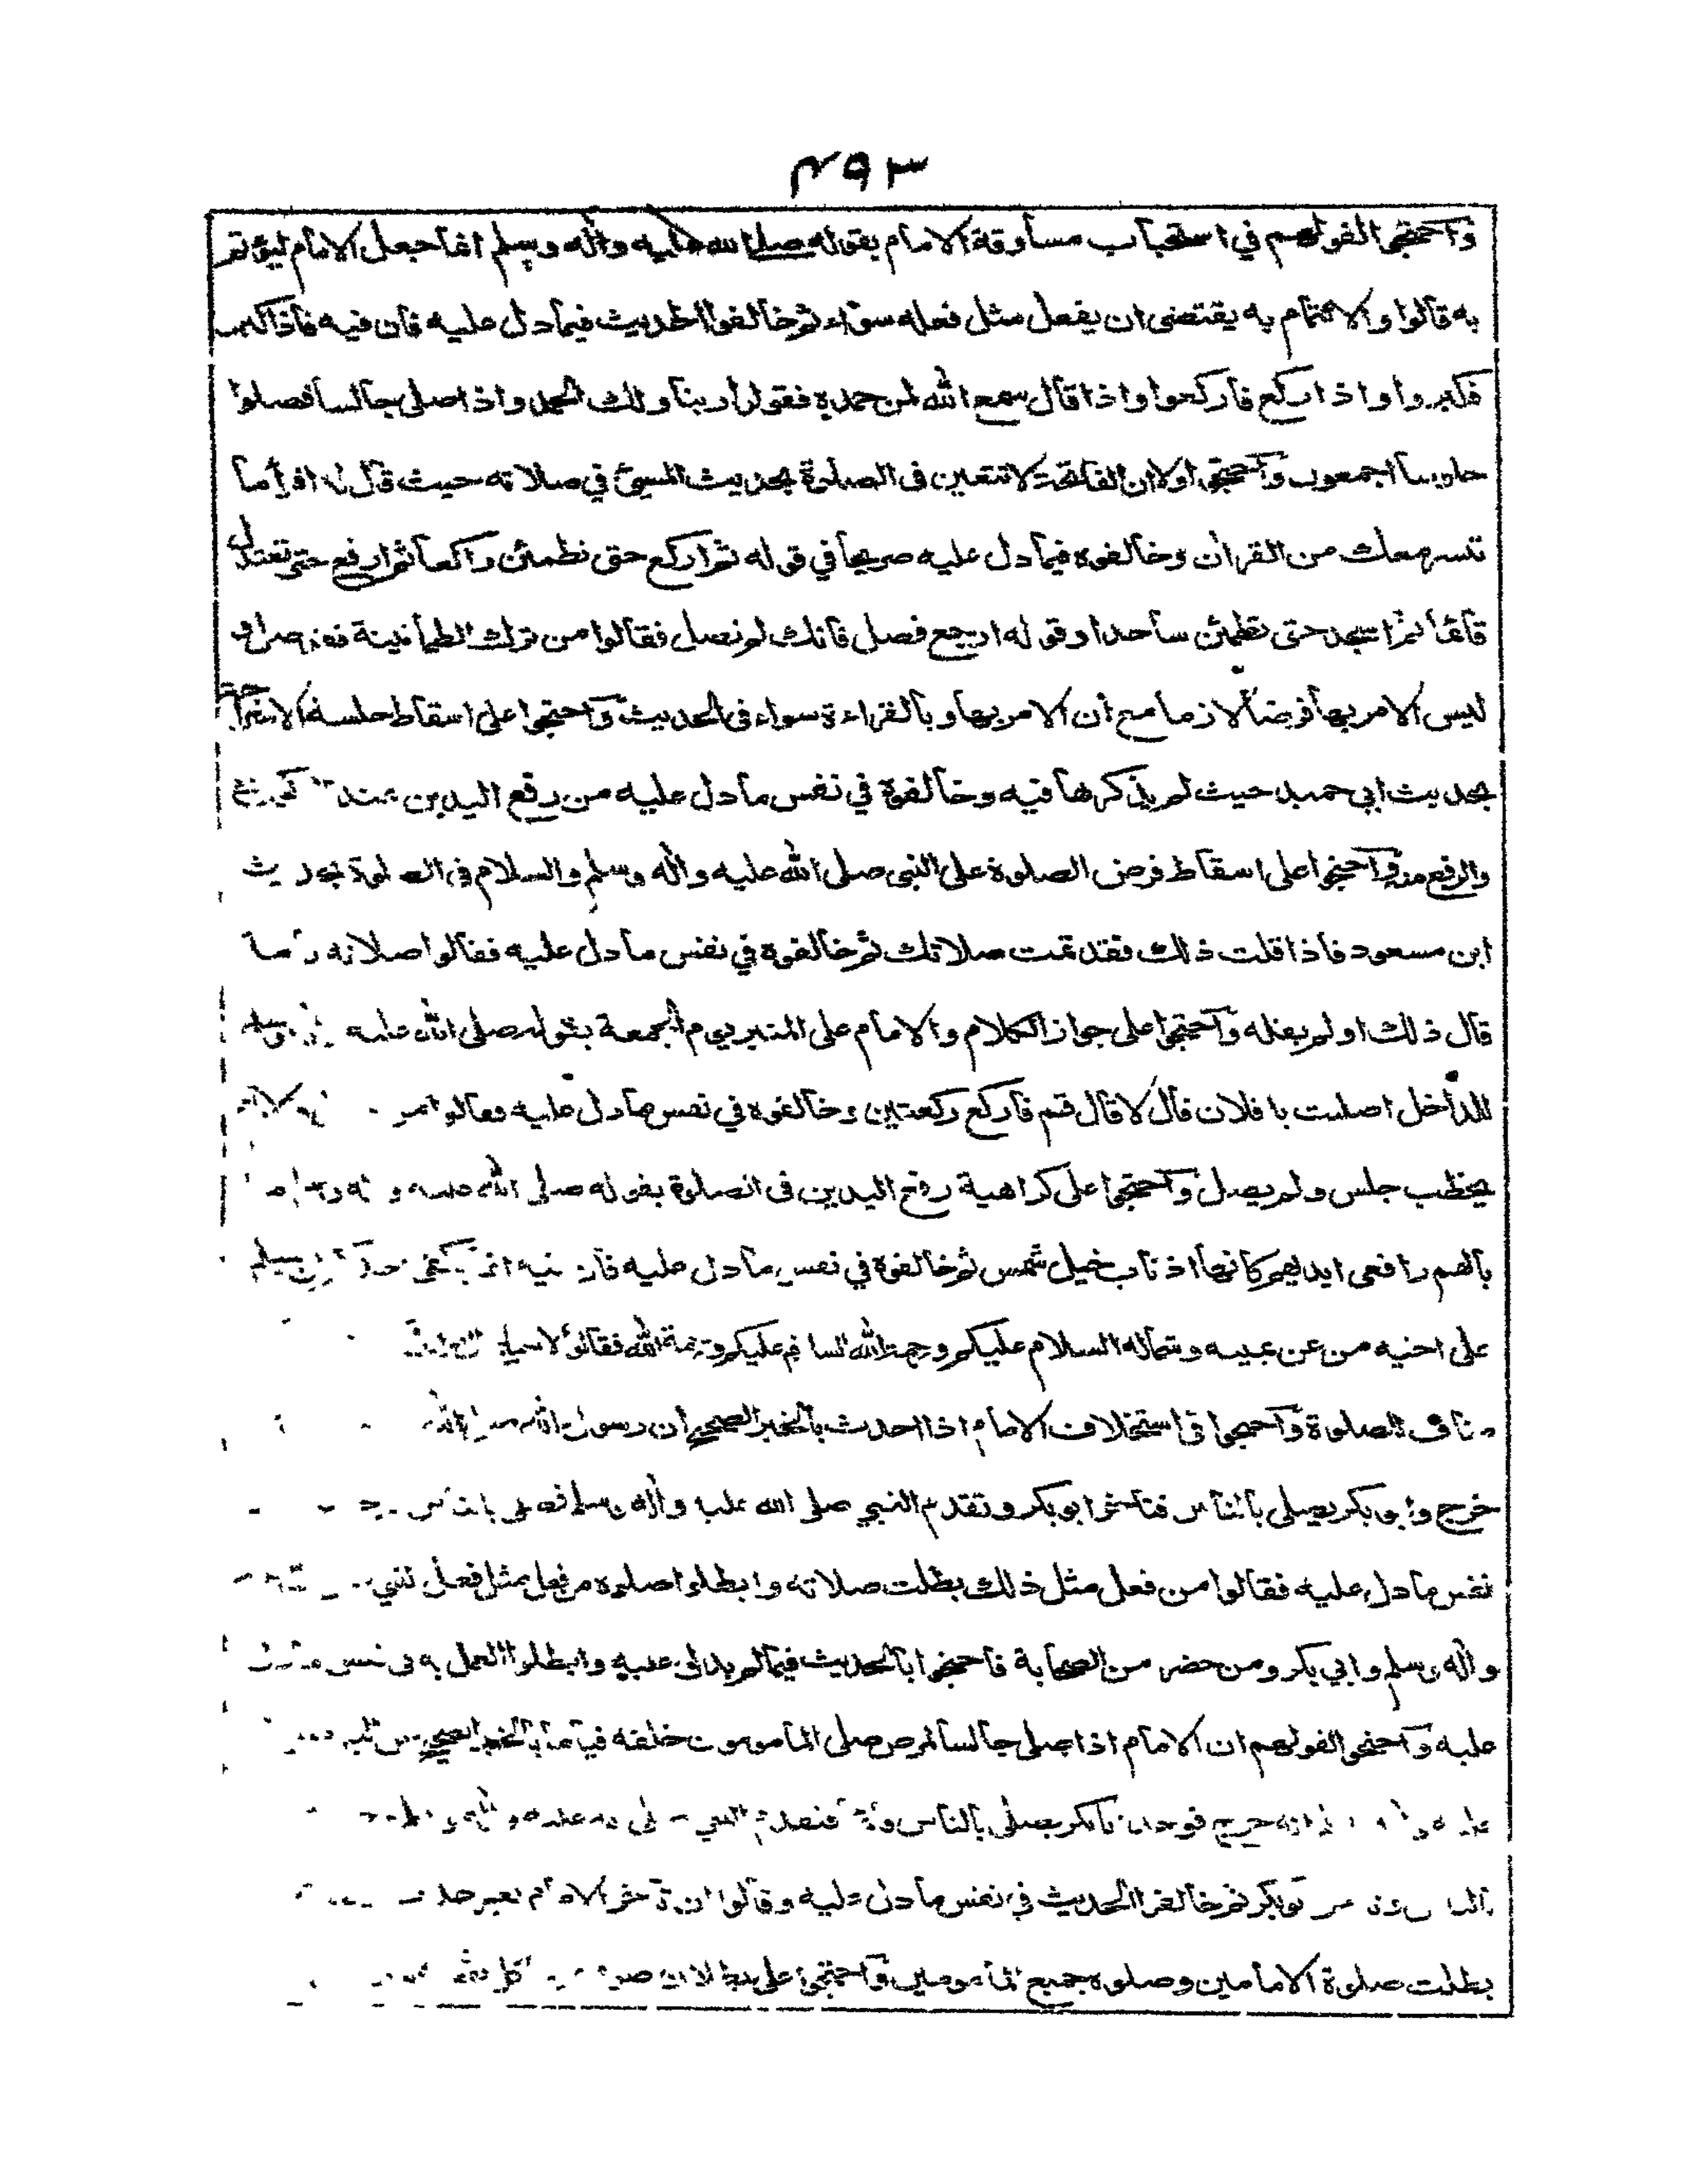 ٤٩٣
واحتجوا لقولهم في استحباب مساوقة الامام بقوله صلى الله عليه واله وسلم انما جعل الامام ليؤتم
به قالوا والائتمام به يقتضى ان يفعل مثل فعله سواء ثم خالفوا الحديث فيما دل عليه فان فيه فاذا كبر
فكبروا واذا ركع فاركعوا واذا قال سمع الله لمن حمده فقولوا ربنا ولك الحمد واذا صلى جالسا فصلوا
جلوسا اجمعون واحتجوا ان الفاتحة لا تتعين فى الصلوة بحديث المسيئ في صلاته حيث قال له اقرأ ما
تيسر معك من القران وخالفوه فيما دل عليه صريحا في قوله ثم اركع حتى تطمئن راكعا ثم ارفع حتى تعتدل
قائما ثم اسجد حتى تطمئن ساجدا وقوله ارجع فصل فانك لم تصل فقالوا من ترك الطمأنينة فقد صلى و
ليس الامر بها فرضا لازما مع ان الامر بها وبالقراءة سواء فى الحديث واحتجوا على اسقاط جلسة الاستراحة
بحديث ابي حميد حيث لم يذكرها فيه وخالفوه في نفس ما دل عليه من رفع اليدين عند الركوع
والرفع منه واحتجوا على اسقاط فرض الصلوة على النبى صلى الله عليه واله وسلم والسلام فى الصلوة بحديث
ابن مسعود فاذا قلت ذلك فقد تمت صلاتك ثم خالفوه في نفس ما دل عليه فقالوا صلاته تامة
قال ذلك او لم يقله واحتجوا على جواز الكلام والامام على المنبر يوم الجمعة بقوله صلى الله عليه وسلم
للداخل اصليت يا فلان قال لا قال قم فاركع ركعتين وخالفوه في نفس ما دل عليه فقالوا من
يخطب جلس ولم يصل واحتجوا على كراهية رفع اليدين فى الصلوة بقوله صلى الله عليه و
بالهم رافعى ايديهم كانها اذناب خيل شمس ثم خالفوه في نفس ما دل عليه فان فيه انما يكفى يسلم
على اخيه من عن يمينه وشماله السلام عليكم ورحمة الله السلام عليكم ورحمة الله فقالوا لا
الصلوة واحتجوا فى استخلاف الامام اذا احدث بالخبر الصحيح ان رسول الله صلى الله
خرج وابو بكر يصلى بالناس فتاخر ابو بكر وتقدم النبي صلى الله عليه واله وسلم فصلى بالناس
نفس ما دل عليه فقالوا من فعل مثل ذلك بطلت صلاته وابطلوا صلوة من فعل مثل فعل
واله وسلم وابي بكر ومن حضر من الصحابة فاحتجوا بالحديث فيما لم يدل عليه وابطلوا العمل به فى نفس
عليه واحتجوا لقولهم ان الامام اذا صلى جالسا لمرض صلى المأمومون خلفه قياما بالخبر الصحيح
انه خرج فوجد ابا بكر يصلى بالناس فتقدم
بكر ثم خالفوا الحديث في نفس ما دل عليه وقالوا ان تاخر الامام لغير حدث
بطلت صلوة الامامين وصلوة جميع المأمومين واحتجوا على بطلان